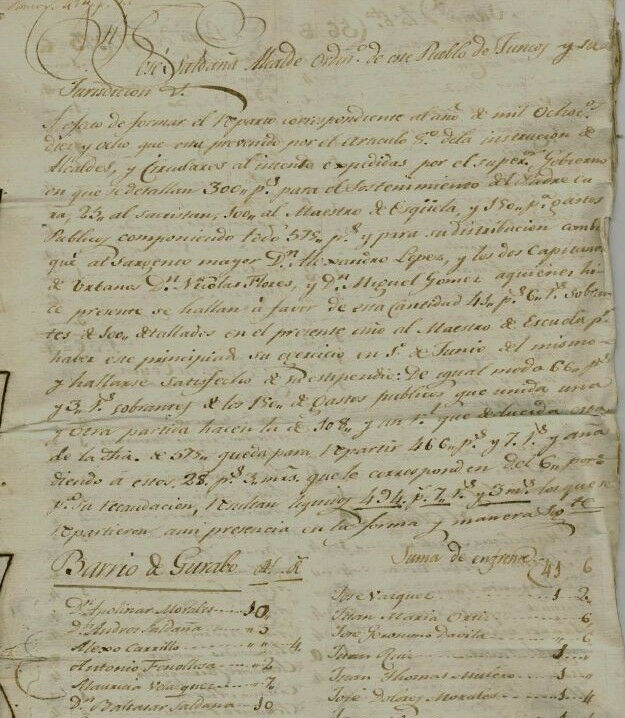 José Saldaña Alcalde Ordin.º de este Pueblo de Juncos y su
Jurisdicion &.
A efecto de formar el reparto correspondiente al año de mil Ochoc.s
diez y ocho que esta prevenido por el Articulo 8.º dela instrucion de
Alcaldes, y Circulares al intento expedidas por el super.or Gobierno
en que se detallan 300,, p.s para el Sostenimiento del Padre Cu
ra, 25,, al Sacristan, 100,, al Maestro de Esqüela, y 150,, p.s Gastos
Publicos componiendo todo 575,, p.s y para su distribucion combo
qué al Sargento mayor D.n Alexandro Lopez, y los dos Capitanes
de Urbanos D.n Nicolas Flores, y D.n Miguel Gomez aquienes hi
ce presente se hallan á favor de esta Cantidad 41,, p.s 6,, r.s sobran
tes de 100,, detallados en el presente año al Maestro de Escuela p.r
haber este principiado su egercicio en 1.º de Junio del mismo
y hallarse satisfecho de su estipendio: De igual modo 66,, p.s
y 3,, r.s sobrantes de los 150,, de Gastos publicos que unida una
y otra partida hacen la de 108,, y un r.l que deducida esta
de la dha. de 575,, queda para repartir 466,, p.s y 7,, r.s y aña
diendo a estos 28,, p.s 3 mrs. que le corresponden del 6,, por %
p.r su recaudacion, resultan liquidos 494,, p.s 7,, r.s y 3 ms. los que se
repartieron ami presencia en la forma y manera sig.te
Barrio de Gurabo
D.n Apolinar Morales 10,,
D.n Andres Saldaña
Alexo Carrillo ,, 4
Antonio Fenollosa ,, 2
Mauricia Velazquez ,,
D.n Baltasar Saldaña 10
Suma de enfrente 41 6
Jose Vazquez 1 2
Juan Maria Ortiz ,, 6
Jose Geronimo Davila ,, 6
Juan Ruiz 1
Juan Thomas Mulero 1
José Dolores Morales 1 4